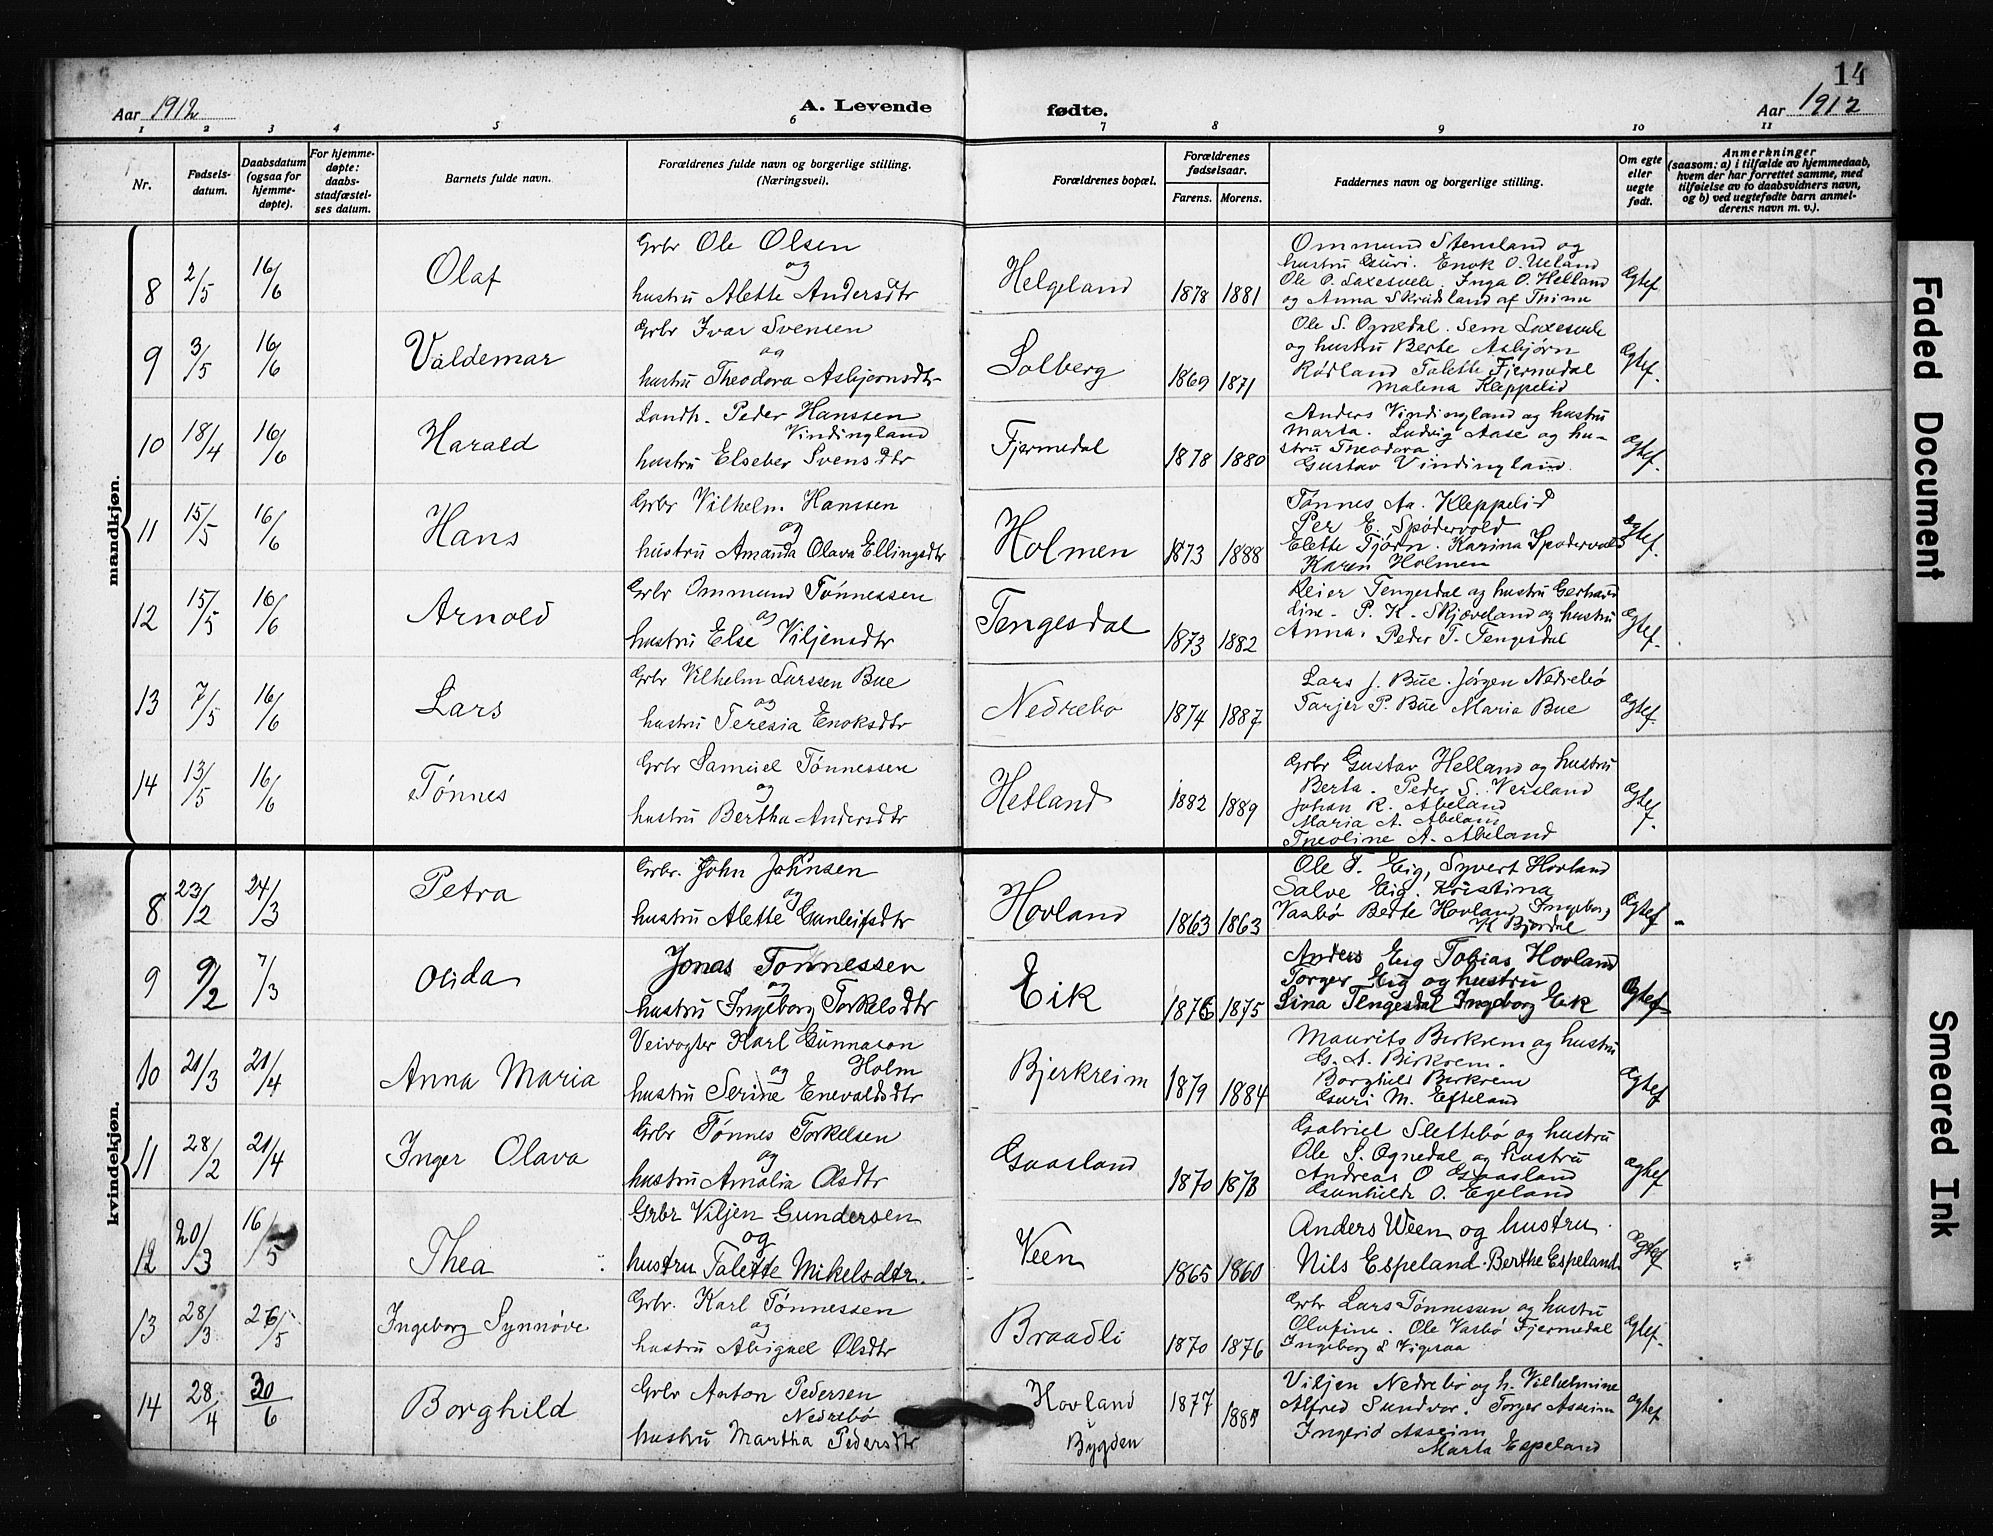 14
Aar 1912 A. Levende fødte. Aar 1912
1 2 3 4 5 6 7 8 9 10 11
Nr.
Fødsels-
datum.
Daabsdatum
(ogsaa for
hjemme-
døpte).
For hjemme-
døpte:
daabs-
stadfæstel-
ses datum.
Barnets fulde navn.
Forældrenes fulde navn og borgerlige stilling.
(Næringsvei).
Forældrenes bopæl.
Forældrenes
fødselsaar.
Farens. Morens.
Faddernes navn og borgerlige stilling.
Om egte
eller
uegte
født.
Anmerkninger
(saasom: a) i tilfælde av hjemmedaab,
hvem der har forrettet samme, med
tilføielse av to daabsvidners navn,
og b) ved uegtefødte barn anmel-
derens navn m. v.).
mandkjøn.
8 2/5 16/6 Olaf
Grbr Ole Olsen
og
hustru Alette Andersdtr
Helgeland 1878 1881
Ommund Stensland og
hustru Guri. Enok O. Ueland
Ole O. Laxesvele. Inga O. Helland
og Anna Skrudland af Thime
Ægtef
9 3/5 16/6 Valdemar
Grbr Ivar Svensen
og
hustru Theodora Asbjørnsdtr
Solberg 1869 1871
Ole S. Ognedal. Sem Laxesvele
og hustru Berte Asbjørn
Rødland Talette Fjermedal
Malena Kleppelid
Ægtef.
10 18/4 16/6 Harald
Landh. Peder Hanssen
Vindingland
hustru Elseber Svensdtr
Fjermedal 1878 1880
Anders Vindingland og hustru
Marta. Ludvig Aase og hu-
stru Theodora
Gustav Vindingland.
Ægtef.
11 15/5 16/6 Hans
Grbr Vilhelm Hanssen
og
hustru Amanda Olava Ellingsdtr
Holmen 1873 1888
Tønnes Aa. Kleppelid
Per E. Spødervold
Elette Tjørn. Karina Spødervold
Karen Holmen
Ægtef.
12 15/5 16/6 Arnold
Grbr Ommund Tønnessen
og
hustru Else Viljensdtr
Tengesdal 1873 1882
Reier Tengesdal og hustru Gerhard
dine. P. K. Skjæveland og hustru
Anna. Peder T. Tengesdal
Ægtef.
13 7/5 16/6 Lars
Grbr Vilhelm Larssen Bue
og
hustru Teresia Enoksdtr
Nedrebø 1874 1887
Lars J. Bue. Jørgen Nedrebø
Tarjer P. Bue Maria Bue
Ægtef.
14 13/5 16/6 Tønnes
Grbr Samuel Tønnessen
og
hustru Bertha Andersdtr
Hetland 1882 1889
Grbr Gustav Helland og hustru
Berta. Peder S. Versland
Johan R. Abeland
Maria A. Abeland
Theoline A. Abeland
Ægtef.
kvindekjøn.
8 23/2 24/3 Petra
Grbr. John Johnsen
og
hustru Alette Gunleifsdtr
Hovland 1863 1863
Ole T. Eig, Syvert Hovland
Salve Eig. Kristina
Vasbø Berte Hovland Ingeborg
K Bjordal
Ægtef
9 9/2 7/3 Olida
Jonas Tønnessen
og
hustru Ingeborg Torkelsdtr
Eik 1876 1875
Anders Eig Tobias Hovland
Torger Eig og hustru
Lina Tengesdal Ingeborg Eik
Ægtef
10 21/3 21/4 Anna Maria
Veivogter Karl Gunnason
og Holm
hustru Serine Enevaldsdtr
Bjerkreim 1879 1884
Maurits Birkrem og hustru
G. A. Birkrem.
Borghild Birkrem
Guri M. Efteland
Ægtef
11 28/2 21/4 Inger Olava
Grbr Tønnes Torkelsen
og
hustru Amalia Olsdtr
Gaasland 1870 1873
Gabriel Slettebø og hustru
Ole S. Ognedal og hustru
Andreas O Gaasland
Gunhilde O. Egeland
Ægtef
12 20/3 16/5 Thea
Grbr Viljen Gundersen
og
hustru Talette Mikelsdtr.
Veen 1865 1860
Anders Ween og hustru
Nils Espeland. Berthe Espeland.
Ægtef
13 28/3 26/5 Ingeborg Synnøve
Grbr. Karl Tønnessen
og
hustru Abiguel Olsdtr
Braadli 1870 1876
Grbr Lars Tønnessen og hustru
Olufine. Ole Vasbø Fjermedal
Ingeborg S Vigesaa
Ægtef.
14 28/4 30/6 Borghild
Grbr Anton Pedersen
Nedrebø
hustru Martha Pedersdtr
Hovland
Bygden
1877 1885
Viljen Nedrebø og h. Vilhelmine
Alfred Sundvor. Torger Asseim
Ingerid Asseim
Marta Espeland
Ægtef
Faded Document
Smeared Ink